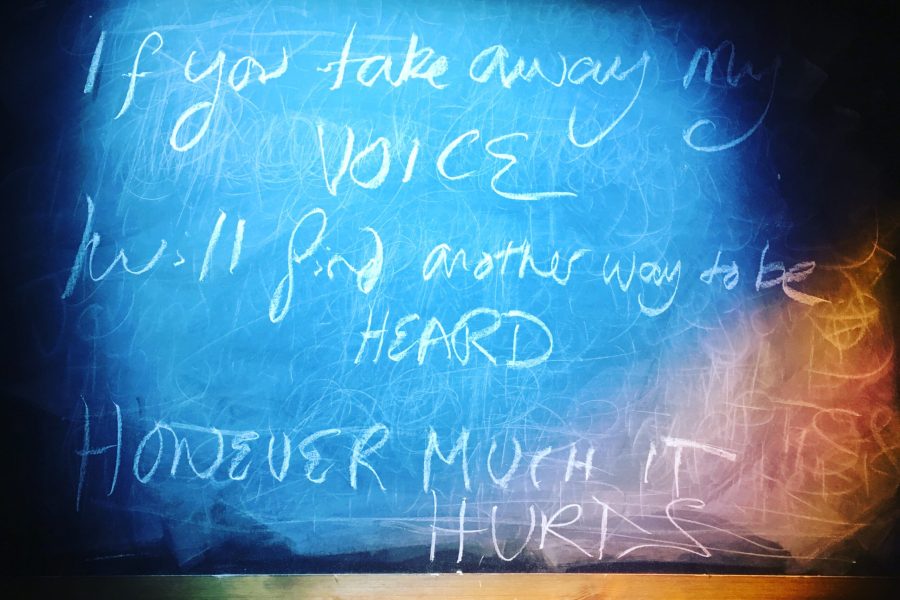 If you take away my
VOICE
I will find another way to be
HEARD
HOWEVER MUCH IT
HURTS